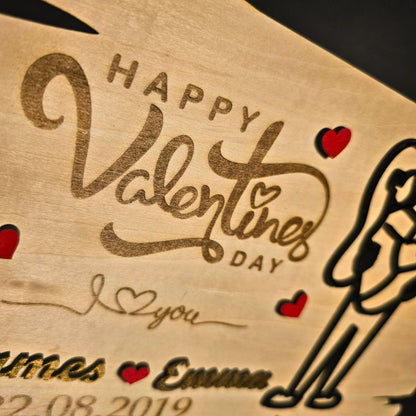 HAPPY
Valentines
DAY
I ♡ you
Emma
22.08.2019